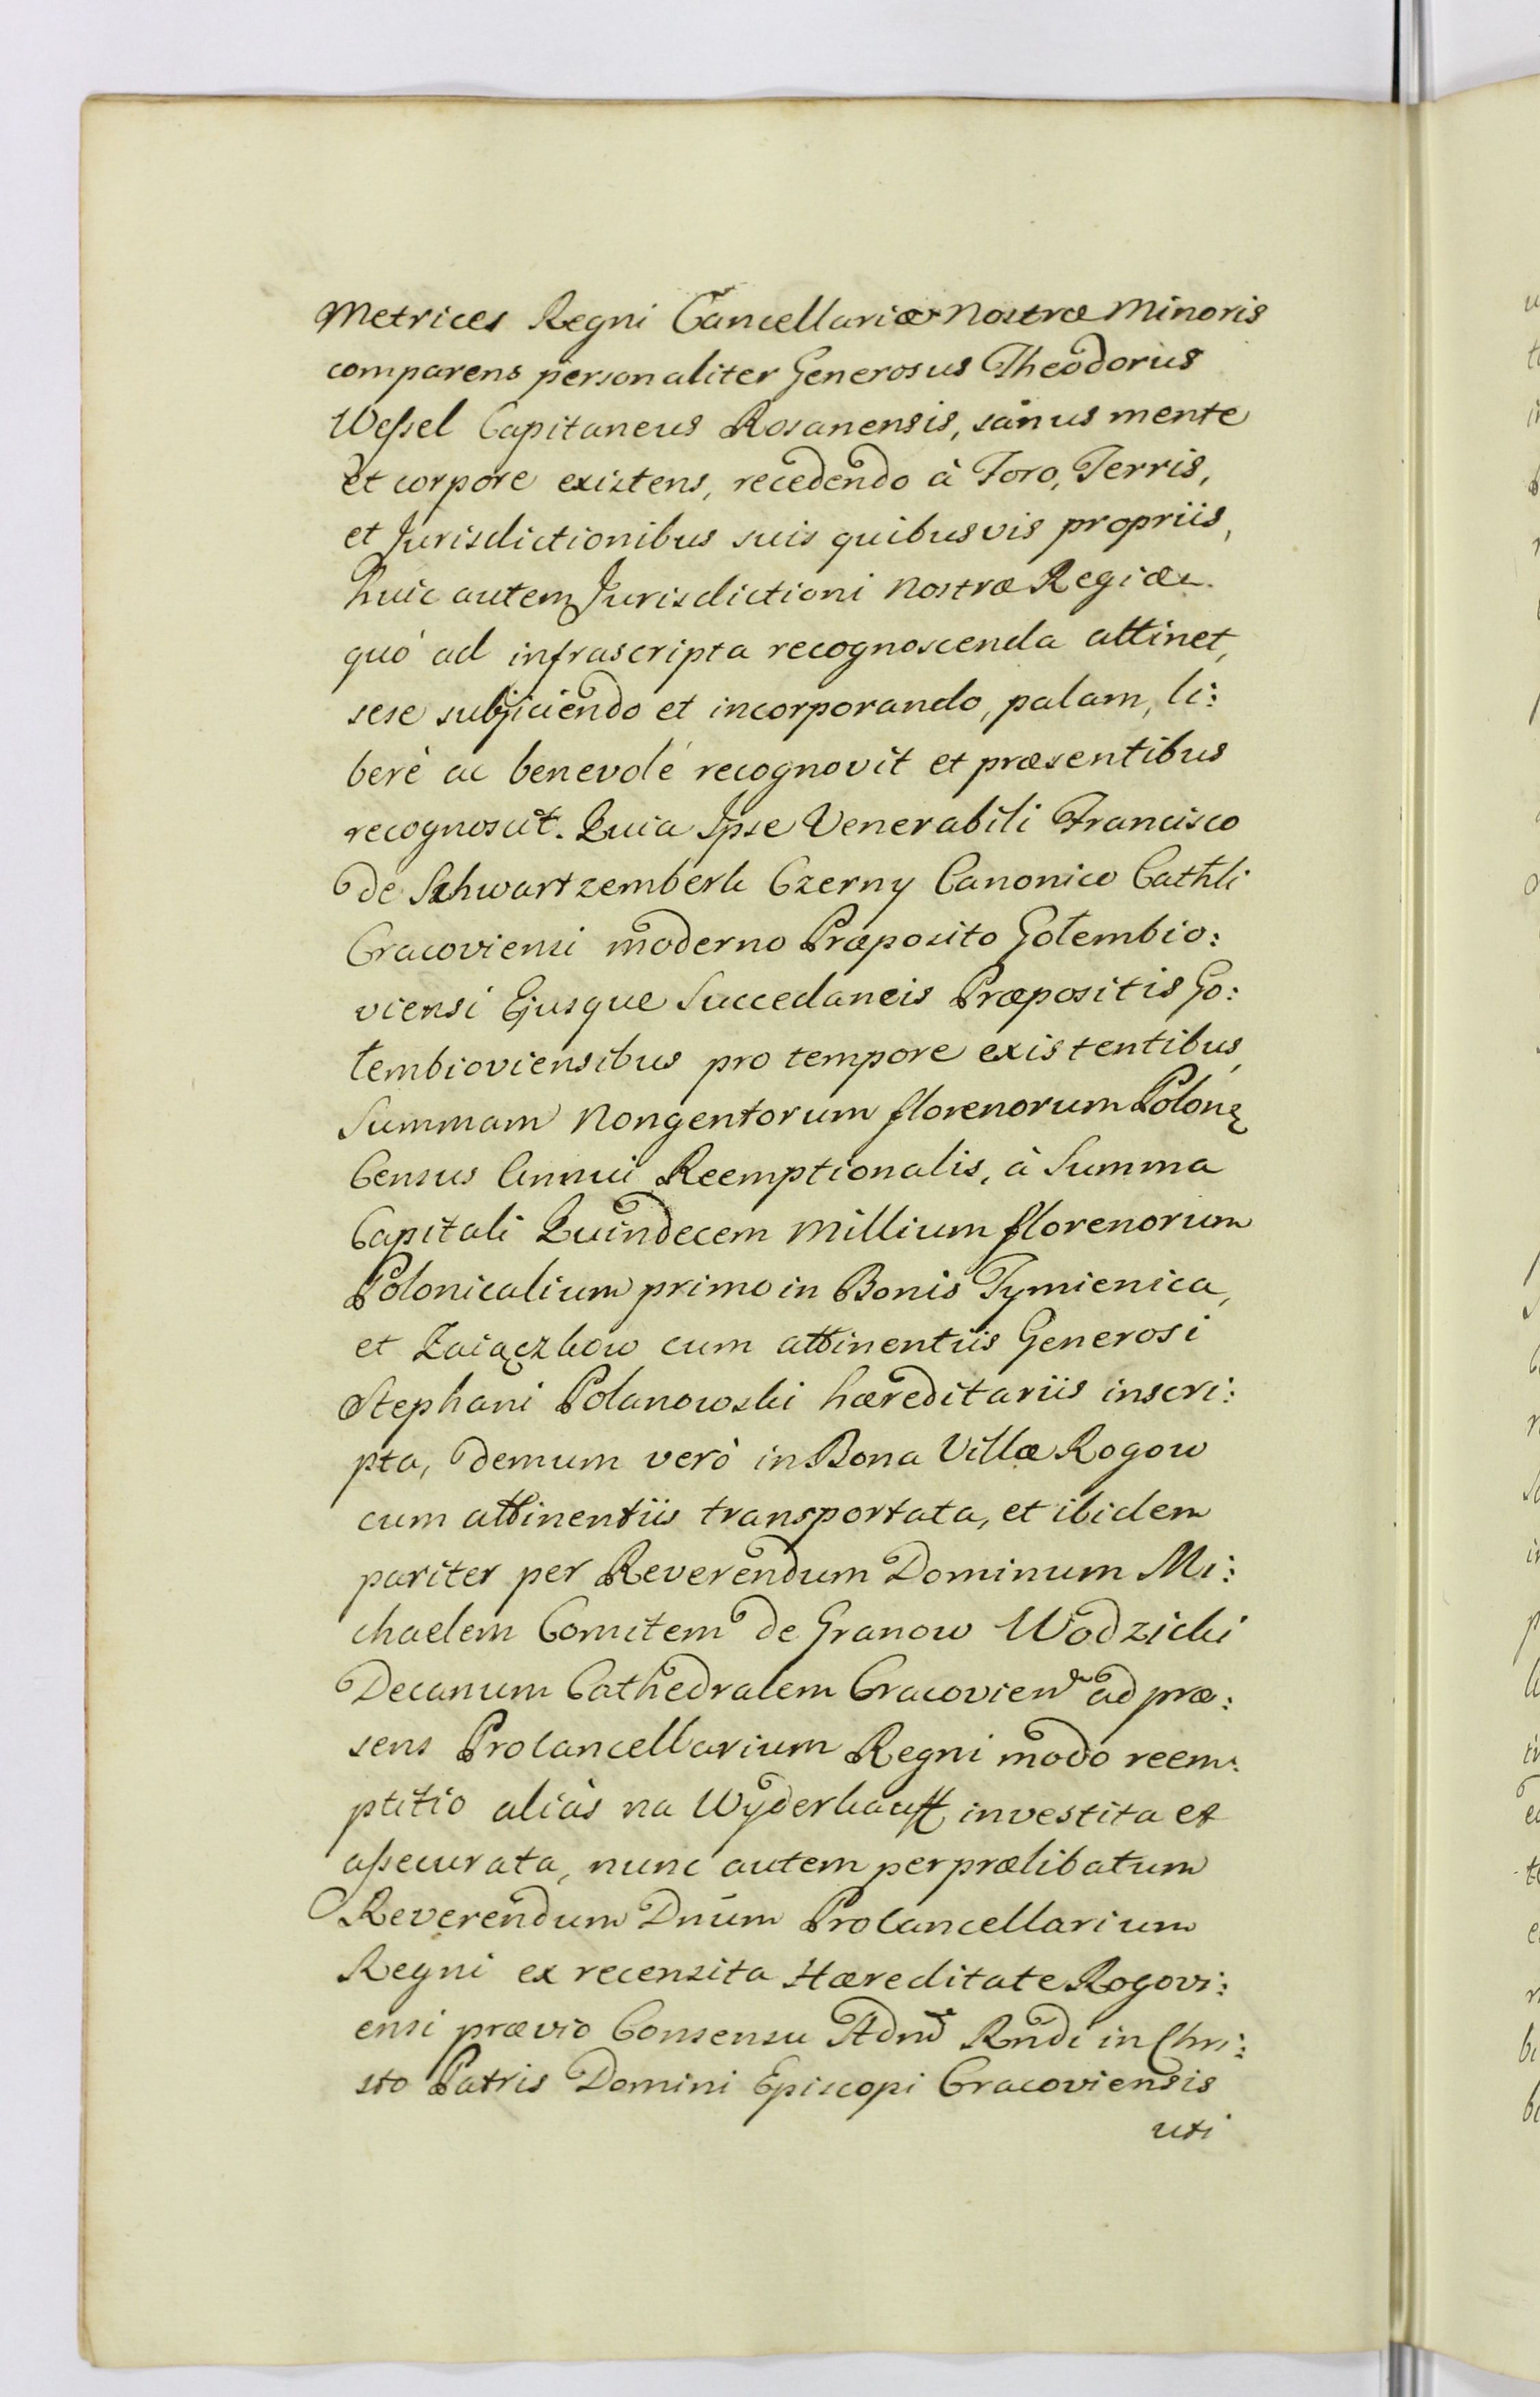 Metrices Regni Cancellariæ Nostræ Minoris
comparens personaliter Generosus Theodorus
Wessel Capitaneus Rosanensis, sanus mente
et corpore existens, recedendo à Foro, Terris,
et Jurisdictionibus suis quibusvis propriis,
huic autem Jurisdictioni Nostræ Regiæ
quò ad infrascripta recognoscenda attinet,
sese subjiciendo et incorporando, palam, li:
berè ac benevolé recognovit et præsentibus
recognoscit. Quia Ipse Venerabili Francisco
de Schwartzemberk Czerny Canonico Cathli
Cracoviensi moderno Præposito Gołembio:
viensi Ejusque Succedaneis Præpositis Go:
łembioviensibus pro tempore existentibus,
Summam Nongentorum florenorum Polonę
Census Annui Reemptionalis, à Summa
Capitali Quindecem Millium florenorum
Polonicalium primo in Bonis Tymienica,
et Zaiączkow cum attinentiis Generosi
Stephani Polanowski hæreditariis inscri:
pta, demum verò in Bona Villæ Rogow
cum attinentiis transportata, et ibidem
pariter per Reverendum Dominum Mi:
chaelem Comitem de Granow Wodzicki
Decanum Cathedralem Cracovien ad præ:
sens Procancellarium Regni modo reem:
ptitio aliàs na Wyderkauff investita et
assecurata, nunc autem per prælibatum
Reverendum Dnum Procancellarium
Regni ex recensita Hæreditate Rogovi:
ensi prævio Consensu Rndi in Chri:
sto Patris Domini Episcopi Cracoviensis
uti